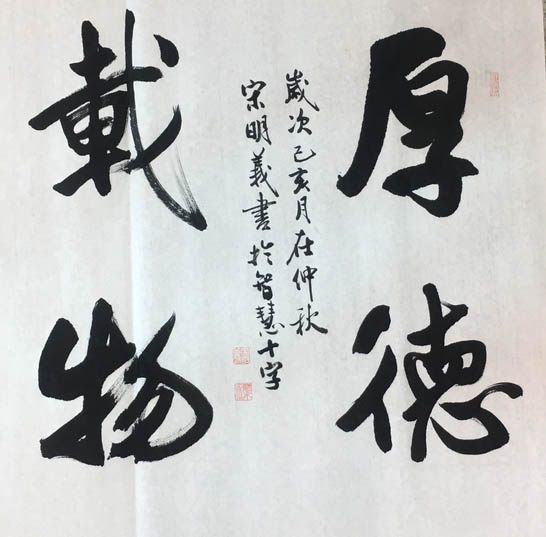 厚德
載物
歲次己亥月在仲秋
宋明義書於智慧十字